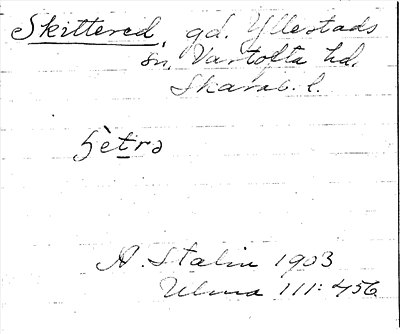 Skittered, gd. Yllestads
sn, Vartofta hd.
Skarab. l.
ʃètrə
A. Stalin 1903
Ulma 111: 456